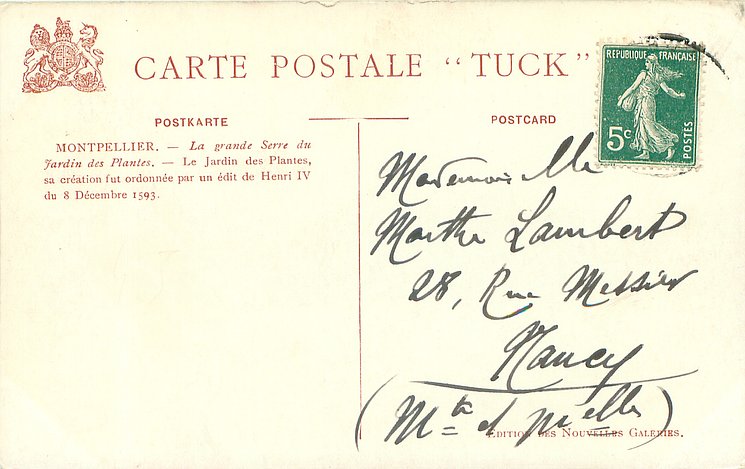 CARTE POSTALE “TUCK”
POSTKARTE
MONTPELLIER. — La grande Serre du
Jardin des Plantes. — Le Jardin des Plantes,
sa création fut ordonnée par un édit de Henri IV
du 8 Décembre 1593.
POSTCARD
REPUBLIQUE FRANÇAISE
5c
POSTES
Mademoiselle
Marthe Lambert
28, Rue Messier
Nancy
(Mthe et Mselle)
EDITION DES NOUVELLES GALERIES.